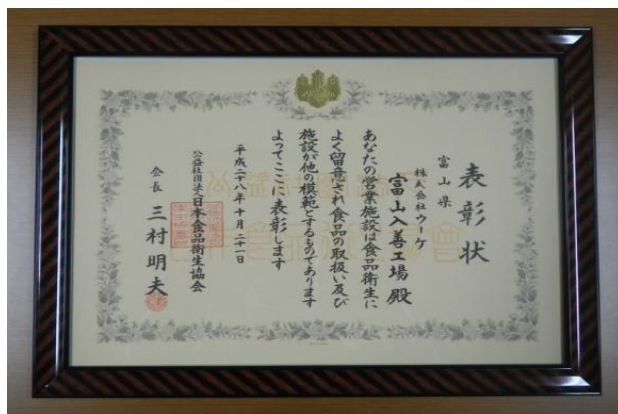 表彰状
富山県
株式会社ウーケ
富山入善工場殿
あなたの営業施設は食品衛生に
よく留意され食品の取扱い及び
施設が他の模範とするものであります
よってここに表彰します
平成二十八年十月二十一日
公益社団法人日本食品衛生協会
会長 三村明夫